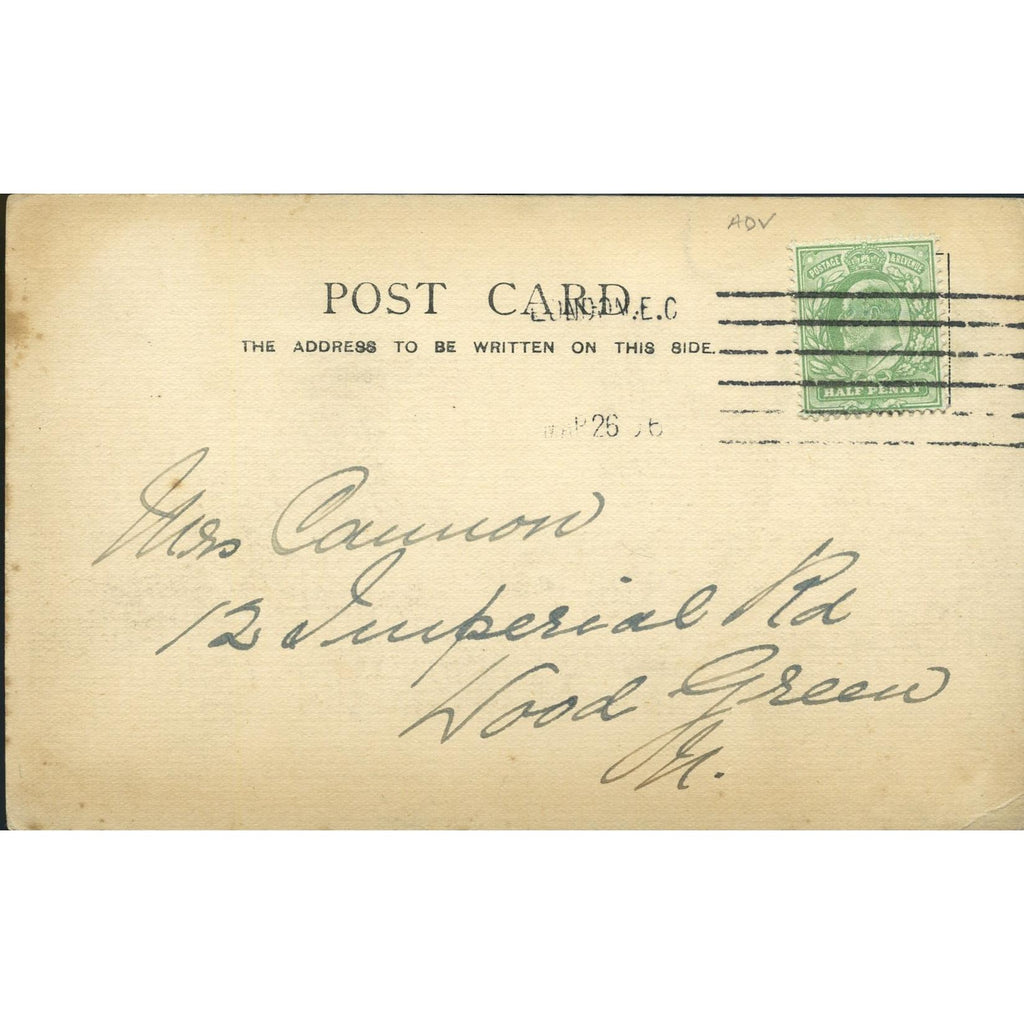 ADV
POSTAGE & REVENUE
POST CARD.
LONDON.E.C
THE ADDRESS TO BE WRITTEN ON THIS SIDE.
HALF PENNY
MAR 26 06
Mrs Cannon
12 Imperial Rd
Wood Green
N.